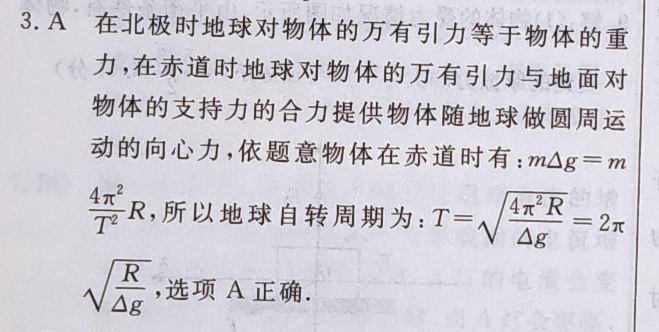 3. A 在北极时地球对物体的万有引力等于物体的重
力,在赤道时地球对物体的万有引力与地面对
物体的支持力的合力提供物体随地球做圆周运
动的向心力,依题意物体在赤道时有:mΔg=m
4π²/T² R,所以地球自转周期为:T=√(4π²R/Δg)=2π
√(R/Δg),选项 A 正确.